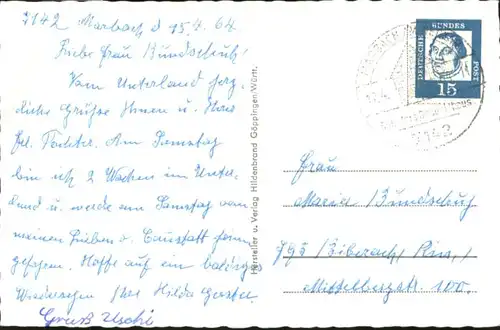 7142 Marbach d 15.4.64
Liebe Frau Bundschuh!
Vom Unterland herz
liche Grüsse Ihnen u. Ihrer
Frl. Tochter. Am Samstag
bin ich 2 Wochen im Unter
land u. werde am Samstag von
meinen Lieben v. Cannstatt
Hoffe auf ein baldiges
Wiedersehen Ihre Hilda
Gruß Uschi
Hersteller u. Verlag Hildenbrand Göppingen/Württ.
DEUTSCHE BUNDES POST
15
7142
Frau
Maria Bundschuh
795 Biberach/Riss/
Mittelbergstr. 100.